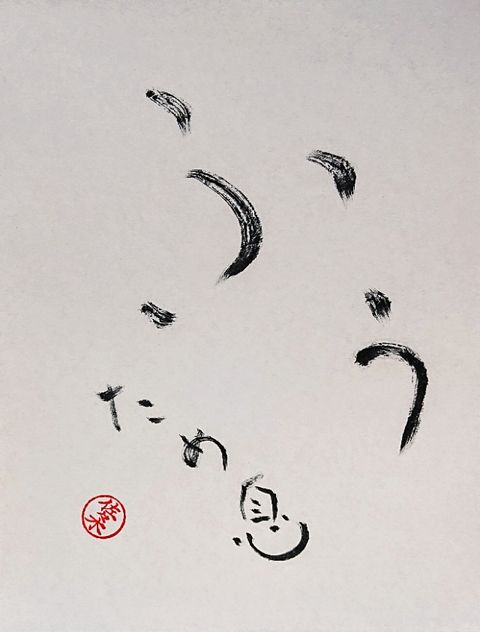 ふう
ため息